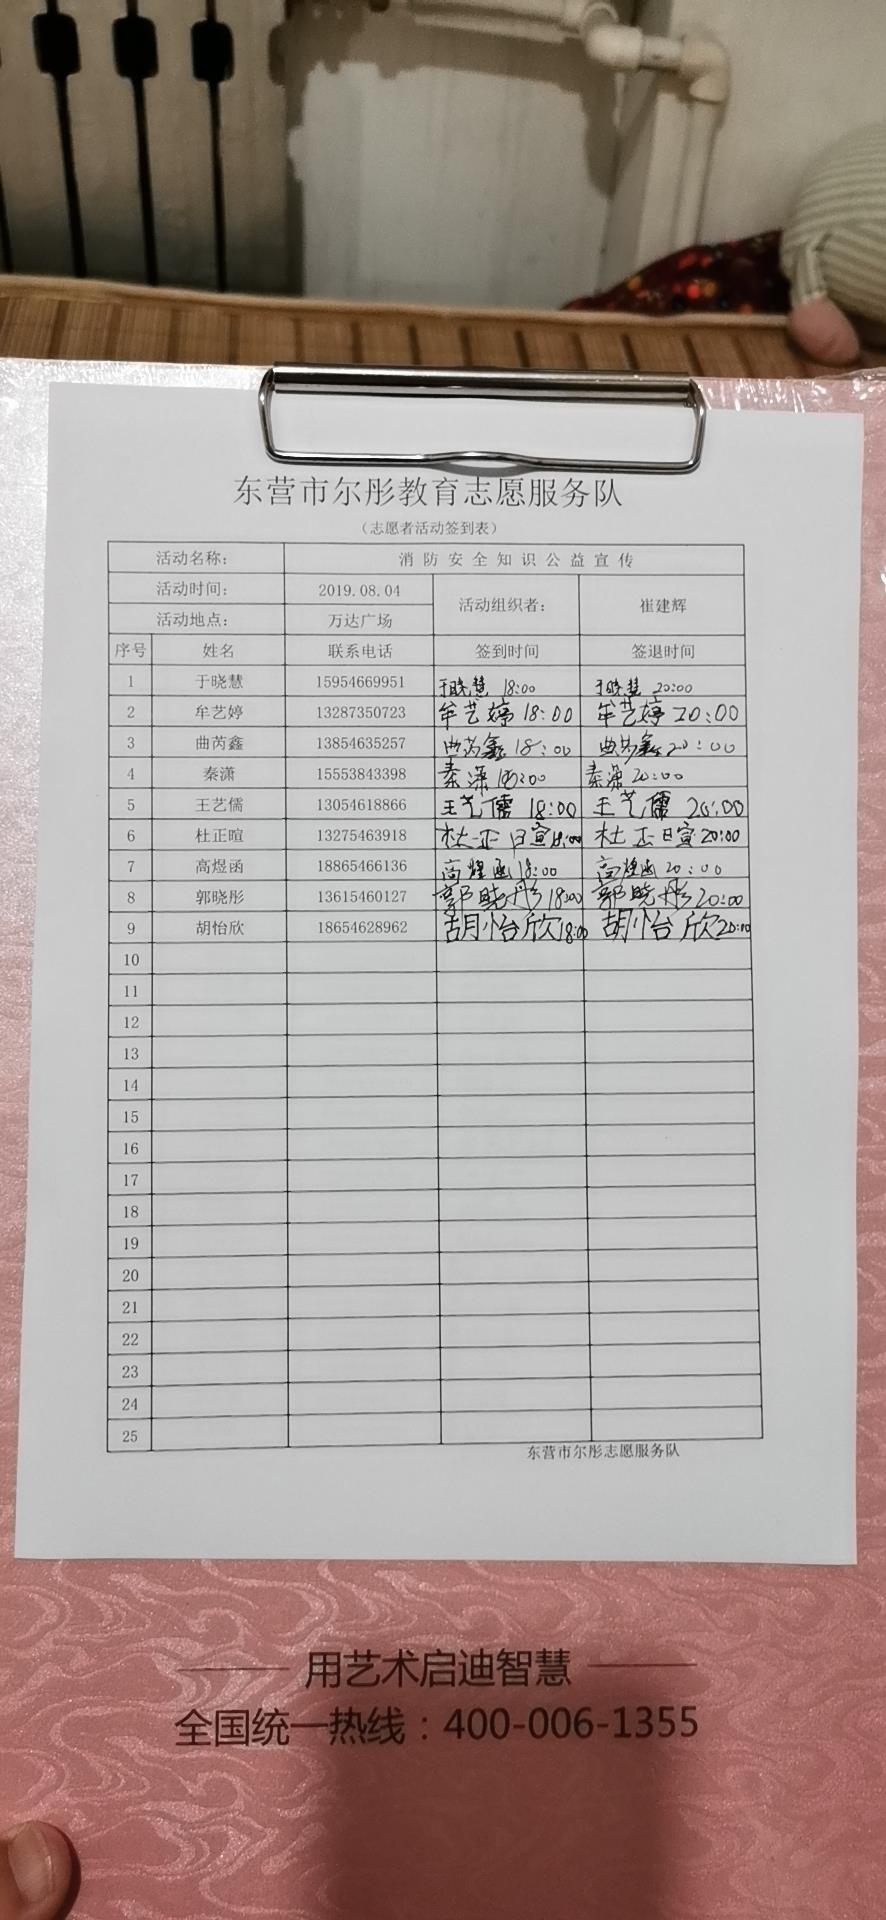 东营市尔彤教育志愿服务队
（志愿者活动签到表）
活动名称： 消防安全知识公益宣传
活动时间： 2019.08.04 活动组织者： 崔建辉
活动地点： 万达广场
序号 姓名 联系电话 签到时间 签退时间
1 于晓慧 15954669951 于晓慧 18:00 于晓慧 20:00
2 牟艺婷 13287350723 牟艺婷 18:00 牟艺婷 20:00
3 曲芮鑫 13854635257 曲芮鑫 18:00 曲芮鑫 20:00
4 秦潇 15553843398 秦潇 18:00 秦潇 20:00
5 王艺儒 13054618866 王艺儒 18:00 王艺儒 20:00
6 杜正暄 13275463918 杜正暄 18:00 杜正暄 20:00
7 高煜函 18865466136 高煜函 18:00 高煜函 20:00
8 郭晓彤 13615460127 郭晓彤 18:00 郭晓彤 20:00
9 胡怡欣 18654628962 胡怡欣 18:00 胡怡欣 20:00
10
11
12
13
14
15
16
17
18
19
20
21
22
23
24
25
东营市尔彤志愿服务队
用艺术启迪智慧
全国统一热线：400-006-1355